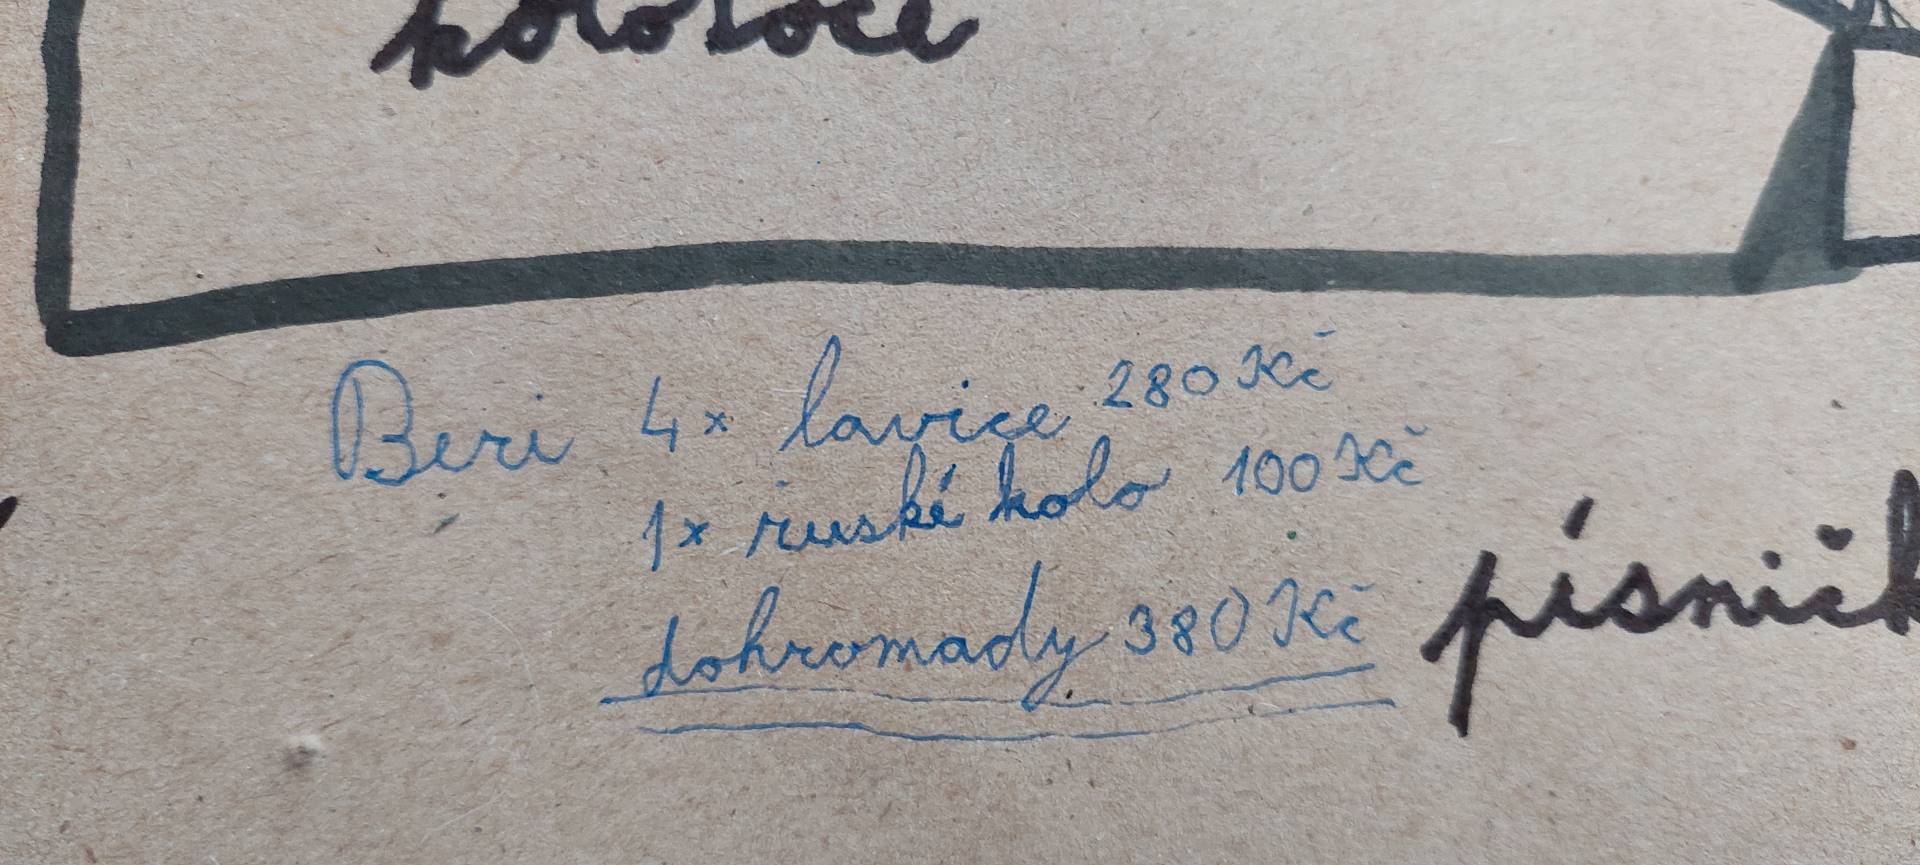 kolotoče
Beri 4x lavice 280 Kč
1x ruské kolo 100 Kč
dohromady 380 Kč
písničk